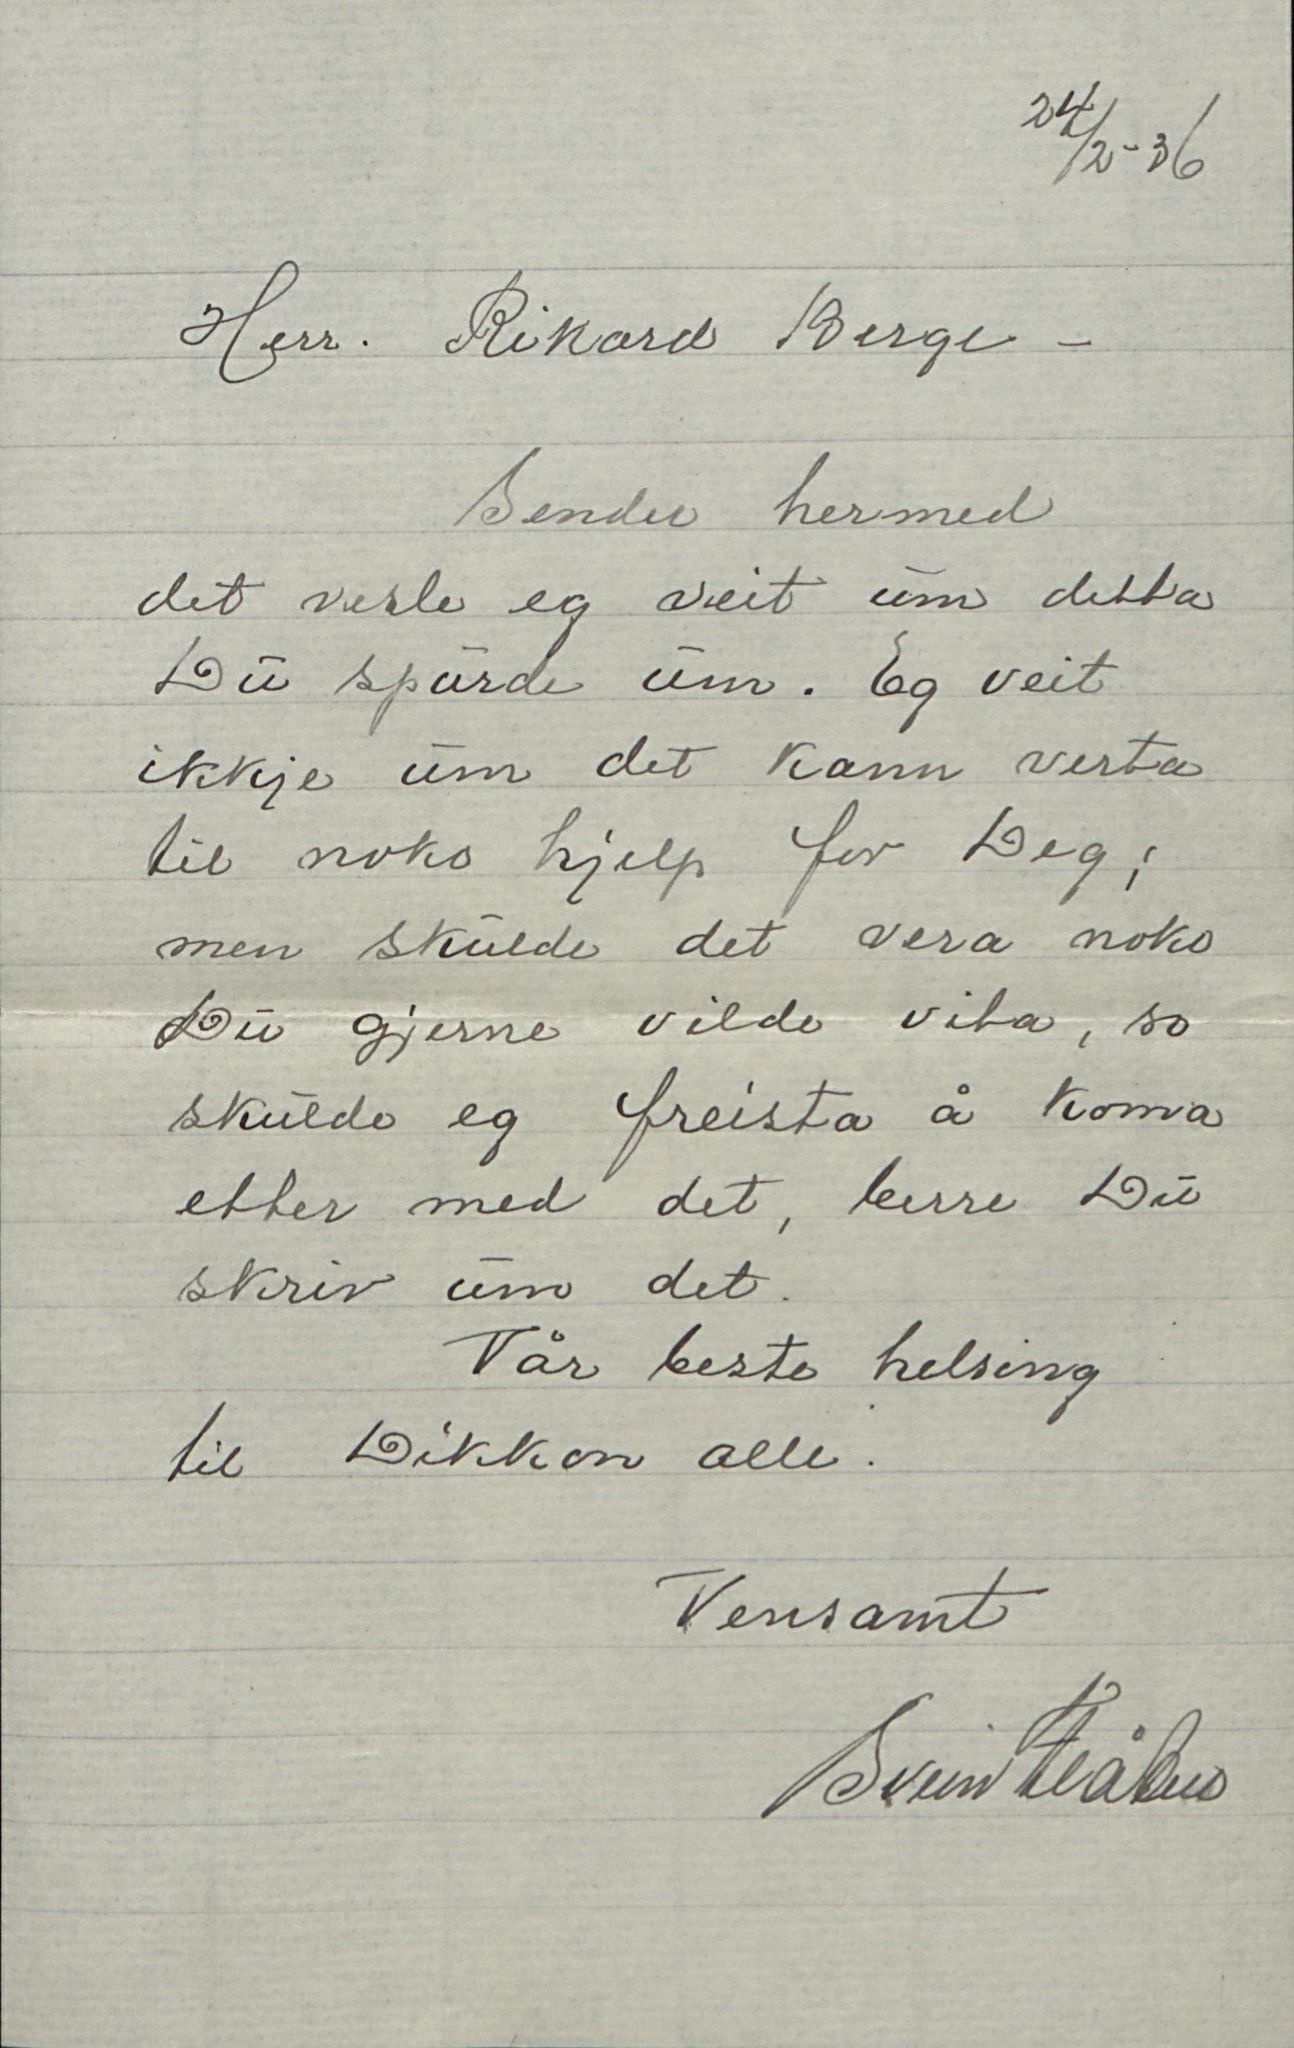 24/2-36
Herr. Rikard Berge -
Sender hermed
det vesle eg veit um detta
Du spurde um. Eg veit
ikkje um det kann verta
til noko hjelp for Deg;
men skulde det vera noko
Du gjerne vilde vita, so
skulde eg freista å koma
etter med det, berre Du
skriv um det.
Vår beste helsing
til Dikkon alle.
Vensamt
Svein